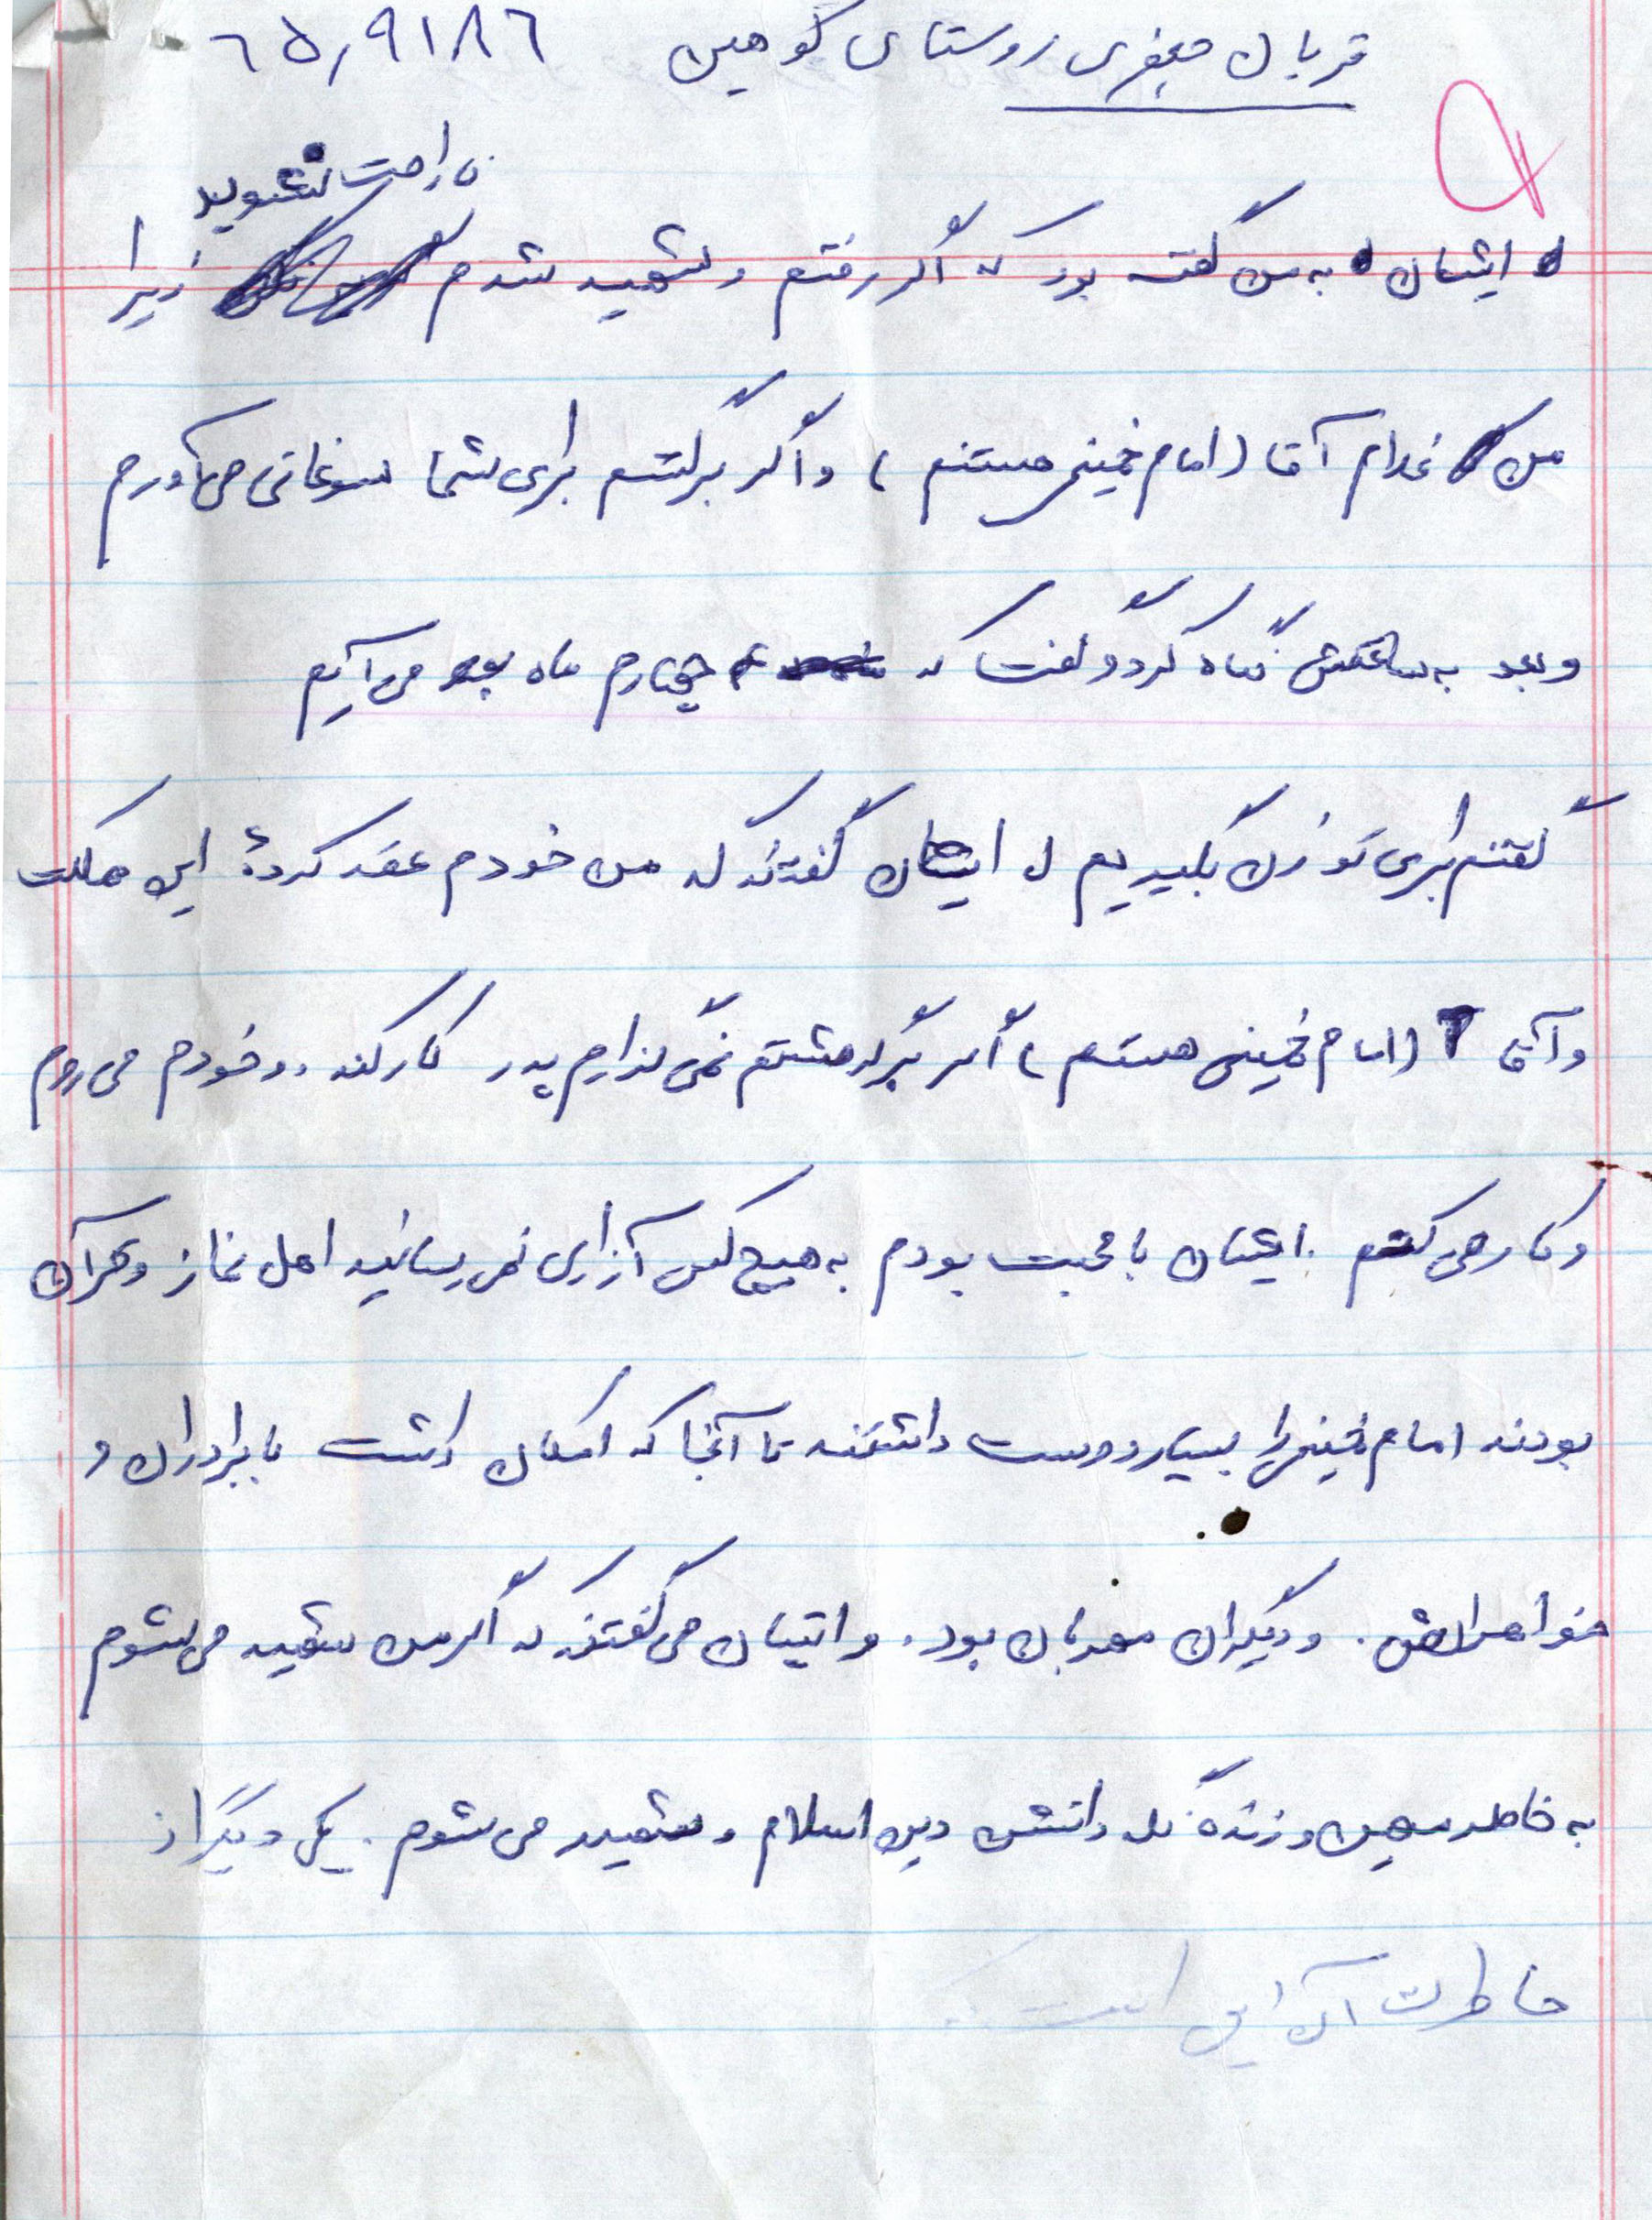 قربان جعفری روستای کوهین ٦٥٫٩١٨٦
ناراحت نشوید
ایشان به من گفته بود که اگر رفتم و شهید شدم زیرا
من غلام آقا (امام خمینی هستم) و اگر برگشتم برای شما سوغاتی می‌آورم
و بعد به ساعتش نگاه کرد و گفت که چهارم ماه بعد می‌آیم
گفتم برای تو زن بگیریم ایشان گفتند که من خودم عقد کردهٔ این مملکت
و آقا (امام خمینی هستم) اگر برگشتم نمی‌گذارم پدر کار کند. و خودم می‌روم
و کار می‌کنم. ایشان با محبت بودم به هیچ کس آزاری نمی‌رسانید اهل نماز و قرآن
بودند امام خمینی را بسیار دوست داشتند تا آنجا که امکان داشت با برادران و
خواهرانش. و دیگران مهربان بود. و ایشان می‌گفتند که اگر من شهید می‌شوم
به خاطر میهن و زنده نگه داشتن دین اسلام و شهید می‌شوم. یکی دیگر از
خاطرات آن این است